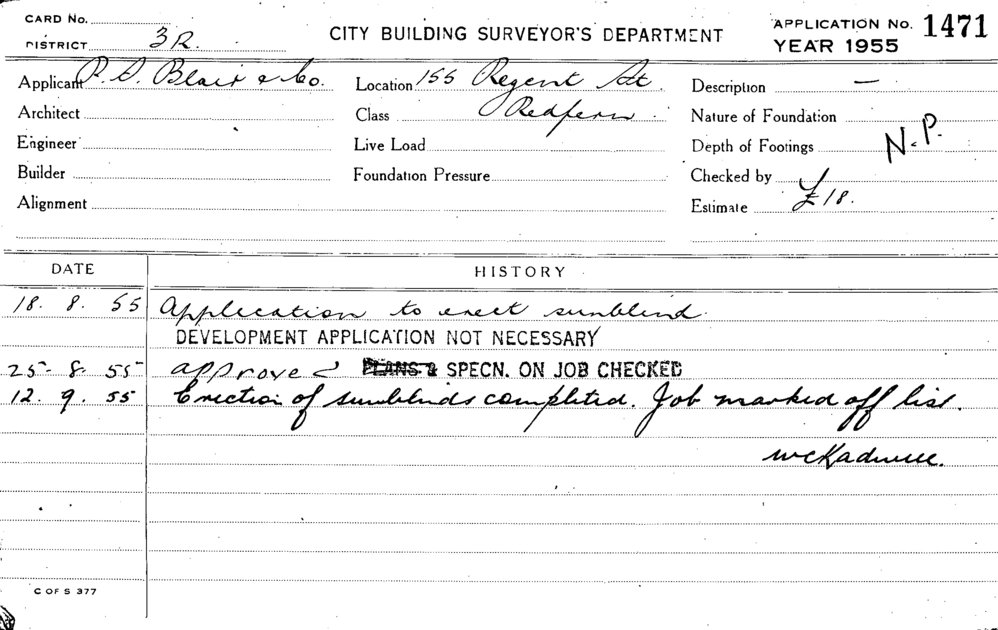 CARD No.
DISTRICT 3R.
CITY BUILDING SURVEYOR'S DEPARTMENT
APPLICATION No. 1471
YEAR 1955
Applicant Blair & Co.
Location 155 Regent St.
Redfern
Description —
Architect
Class
Nature of Foundation
Engineer
Live Load
Depth of Footings
N.P.
Builder
Foundation Pressure
Checked by
Alignment
Estimate £18.
DATE
HISTORY
18. 8. 55 Application to erect sunblind.
DEVELOPMENT APPLICATION NOT NECESSARY
25- 8. 55 approved PLANS & SPECN. ON JOB CHECKED
12. 9. 55 Erection of sunblinds completed. Job marked off list.
C OF S 377